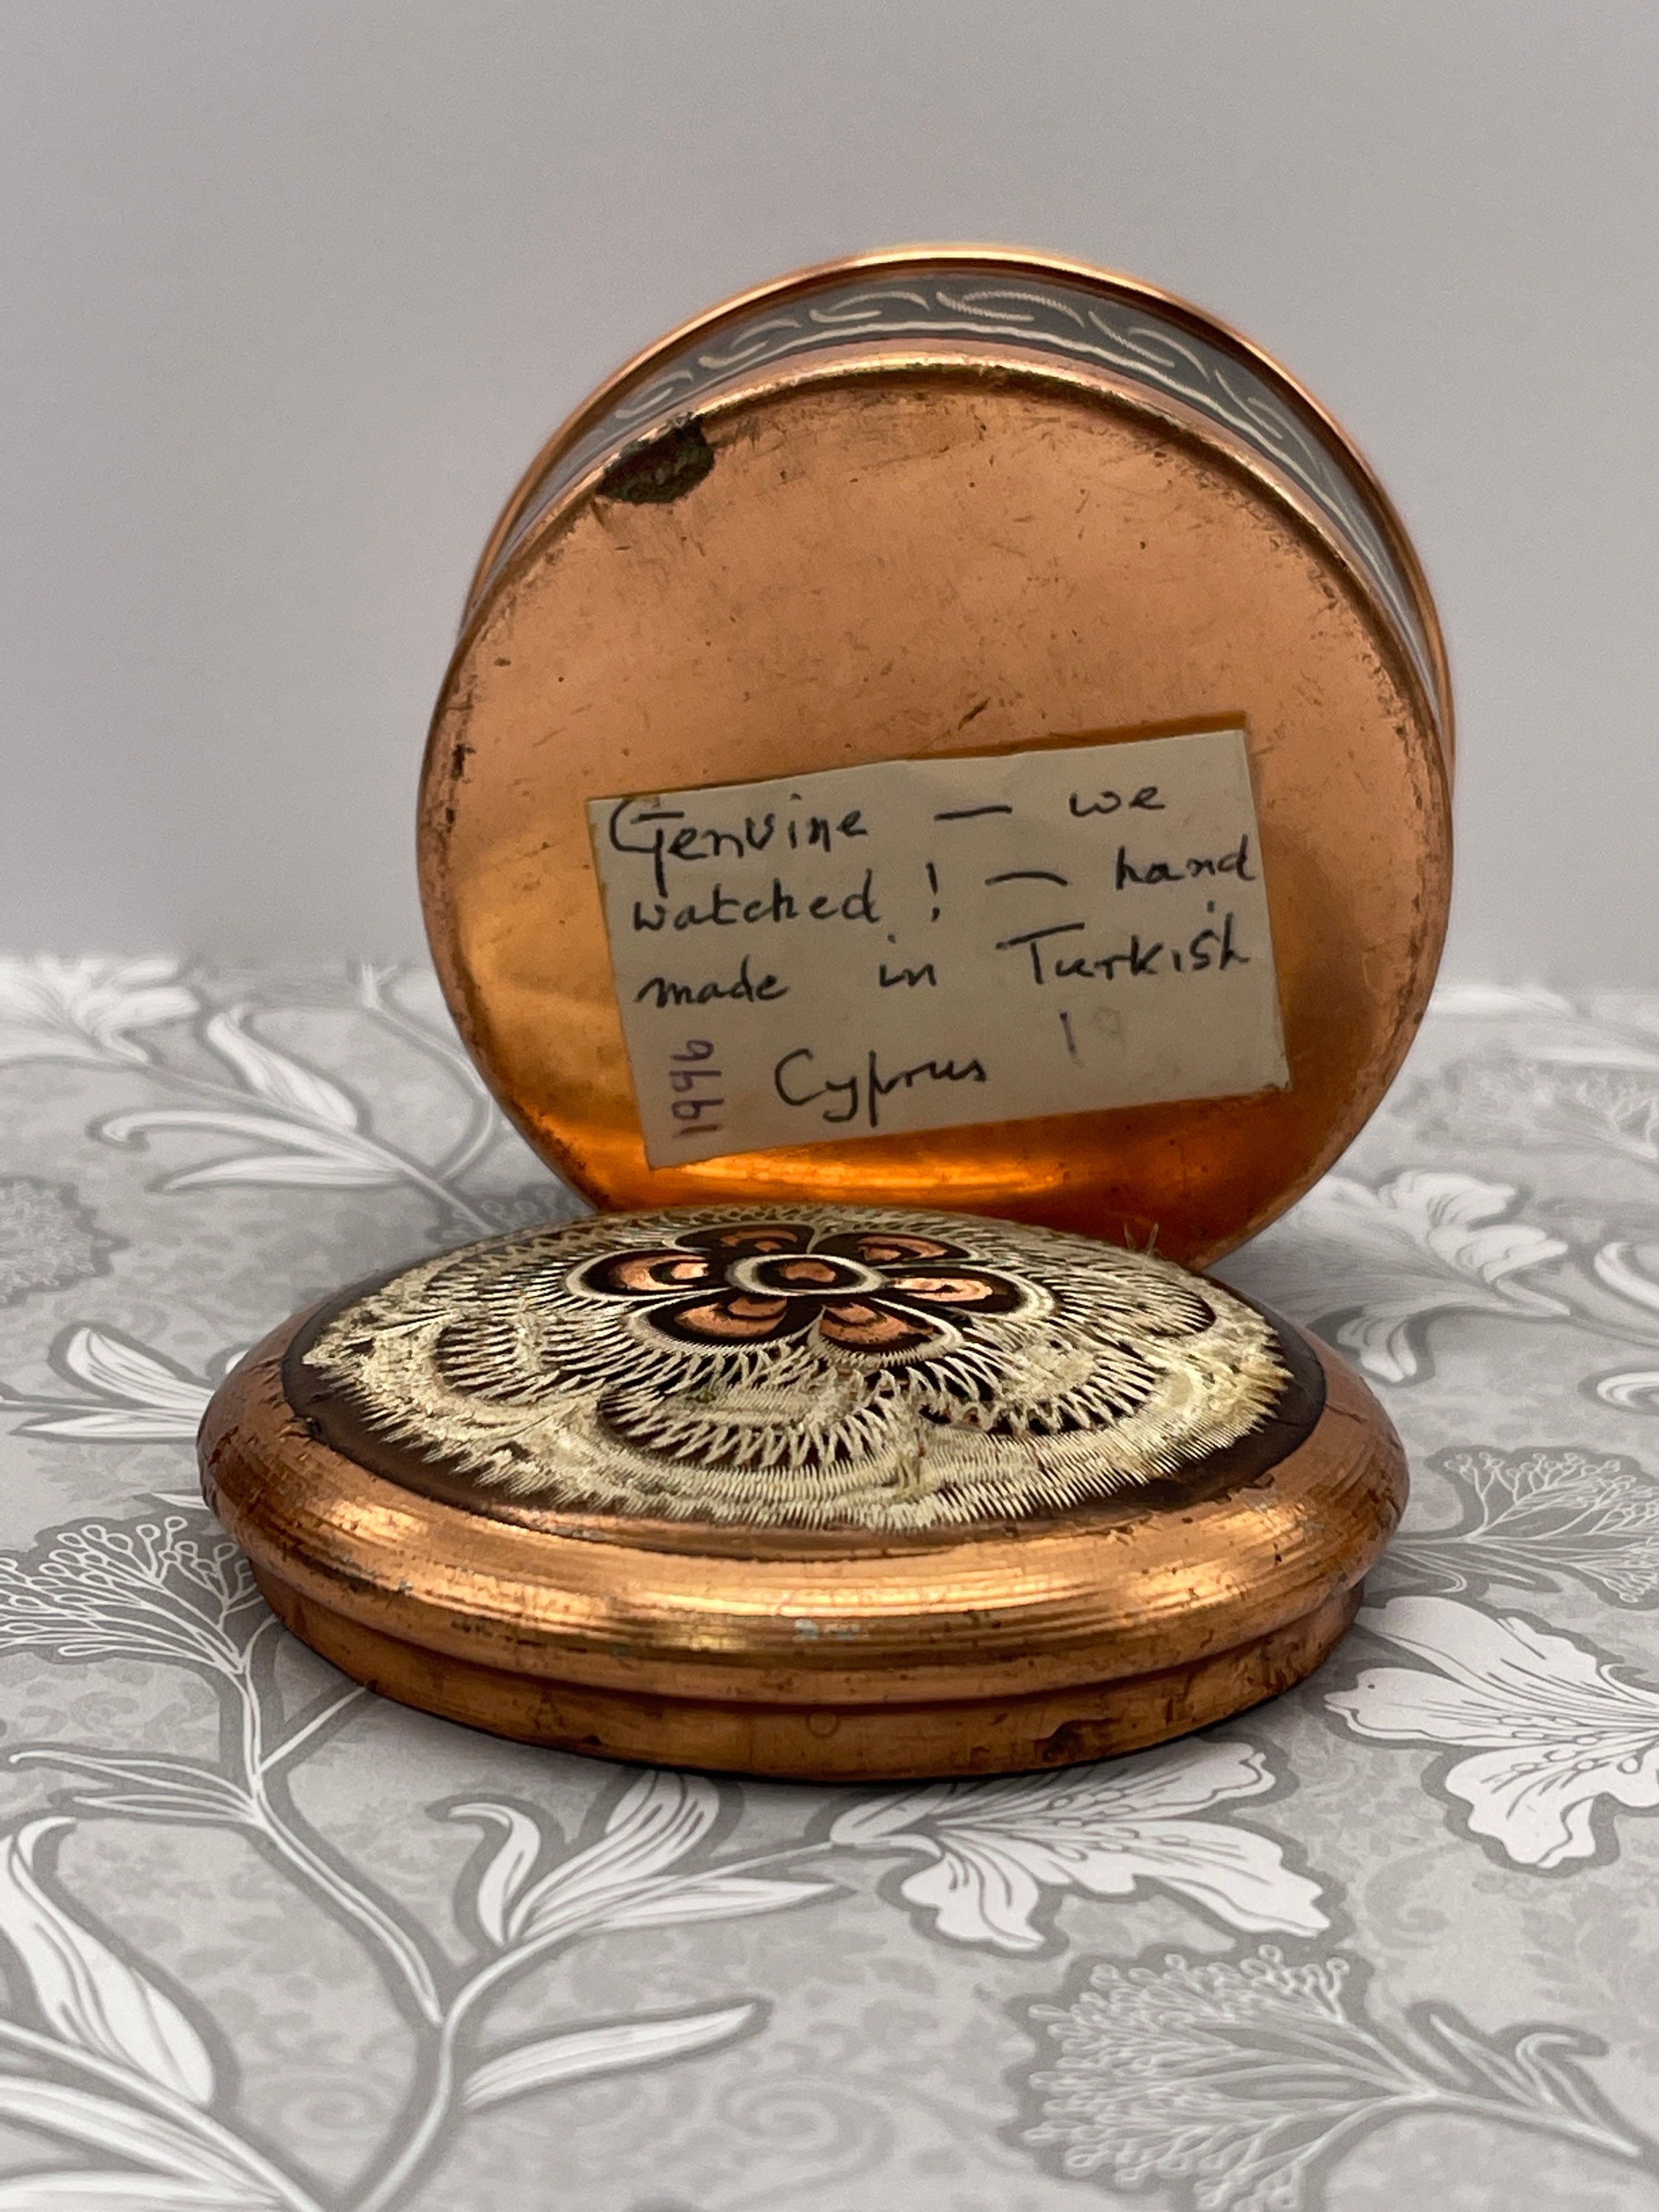 Genuine — we
watched ! — hand
made in Turkish
Cyprus 19
1996